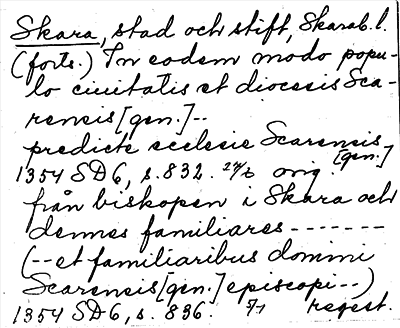 Skara, stad och stift, Skarab. l.
(forts.) In eodem modo popu-
lo ciuitatis et diocesis Sca-
rensis [gen.] --
predicte ecclesie Scarensis
[gen.]
1354 SD6, s. 832. 27/6 orig.
från biskopen i Skara och
dennes familiares -------
(-- et familiaribus domini
Scarensis [gen.] episcopi --)
1354 SD6, s. 836. 5/7 regest.